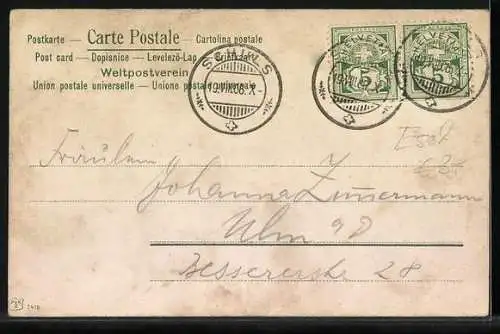 Postkarte – Carte Postale – Cartolina postale
Post card – Dopisnice – Levelező-Lap
Weltpostverein
Union postale universelle – Unione postale
SCHULS
HELVETIA
5
HELVETIA
5
Fräulein
Johanna Zimmermann
Ulm 9D
Bessererstr 28